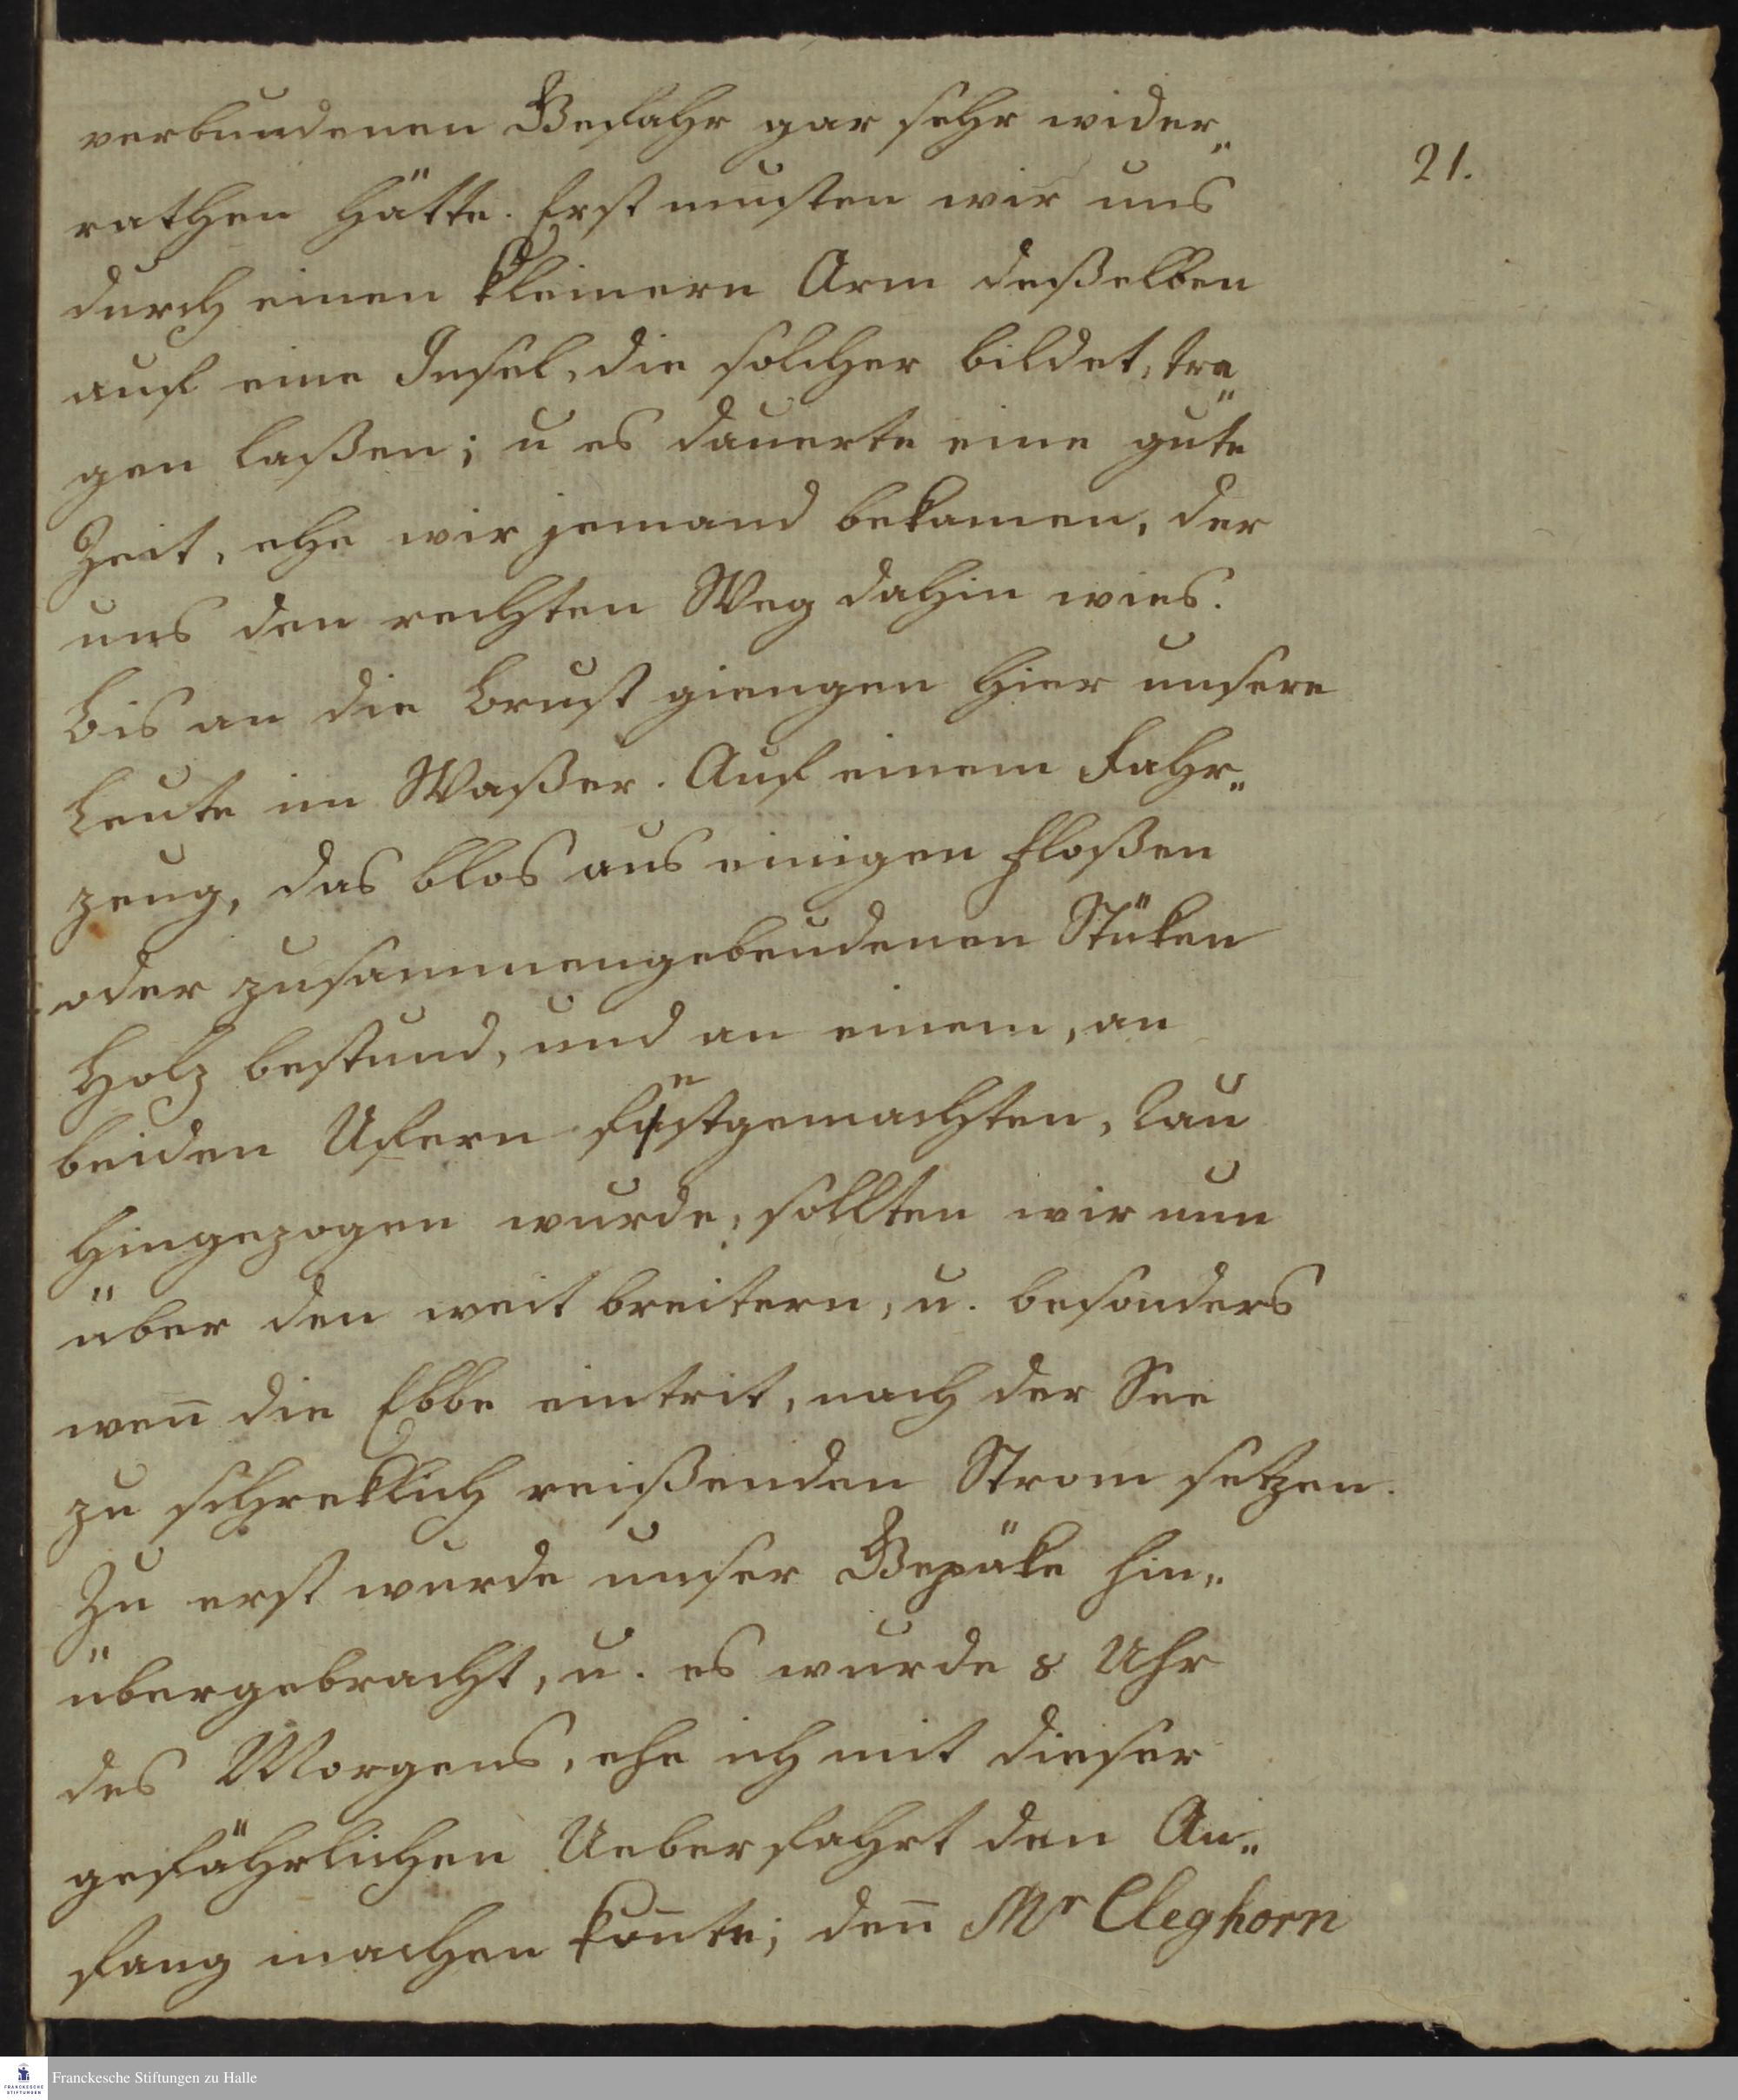 verbundenen Gefahr gar sehr wider„
21.
rathen hätte. Erst musten wir uns
durch einen kleinern Arm deßelben
auf eine Insel, die solcher bildet, tra„
gen laßen; u es dauerte eine gute
Zeit, ehe wir jemand bekamen, der
uns den rechten Weg dahin wies.
Bis an die Brust giengen hier unsere
Leute im Waßer. Auf einem Fahr„
zeug, das blos aus einigen Floßen
oder zusammengebundenen Stüken
Holz bestund, und an einem, an
beiden Ufern festgemachten, Tau
hingezogen wurde, sollten wir nun
über den weit breitern, u. besonders
weñ die Ebbe eintrit, nach der See
zu schreklich reißenden Strom setzen.
Zu erst wurde unser Gepäke hin„
übergebracht, u. es wurde 8 Uhr
des Morgens, ehe ich mit dieser
gefährlichen Ueberfahrt den An„
fang machen koñte; deñ Mr Cleghorn
Franckesche Stiftungen zu Halle